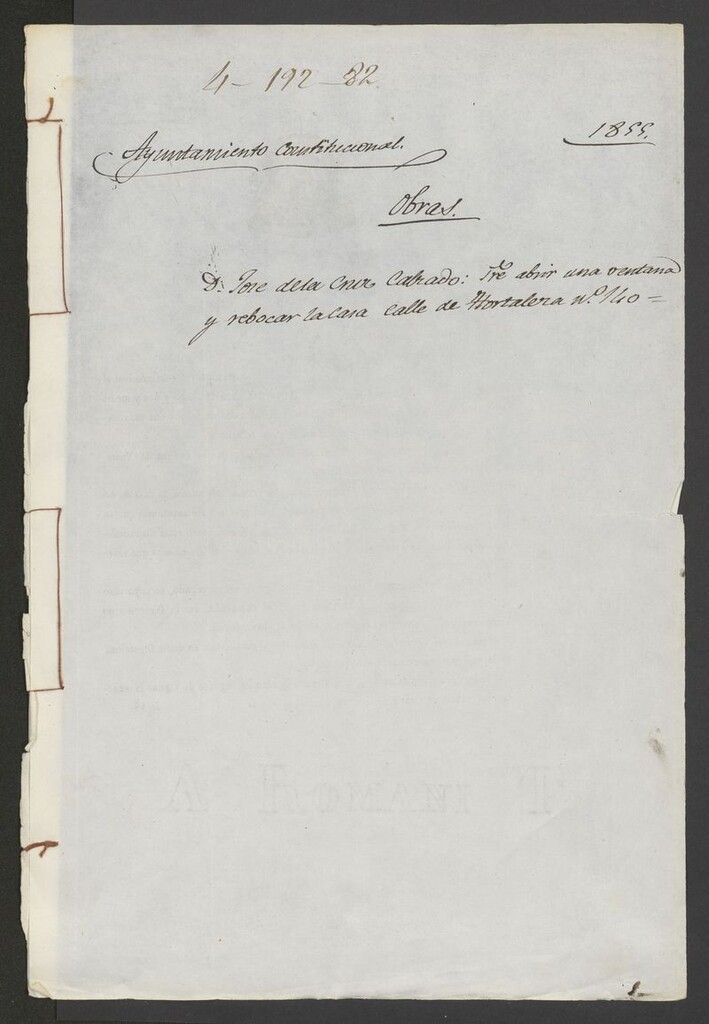 4-192-82
1855.
Ayuntamiento Constitucional.
Obras.
Dn. Jose de la Cruz Calzado: Sre abrir una ventana
y rebocar la casa calle de Hortaleza nº. 140=